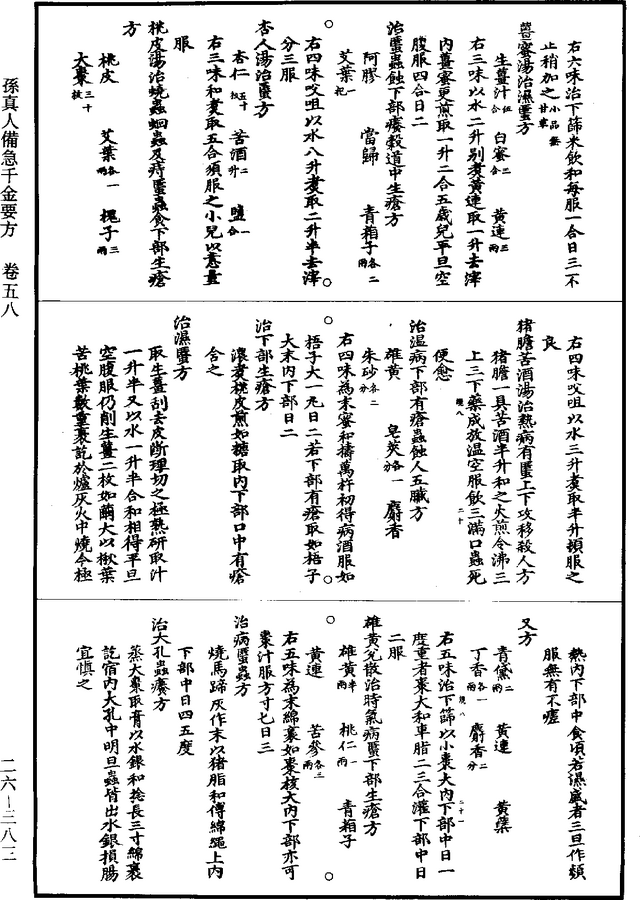 右六味治下篩米飲和每服一合日三不
止稍加之小品無甘草
薑蜜湯治濕䘌方
生薑汁五合 白蜜三合 黃連三兩
右三味以水二升別煑黃連取一升去滓
內薑蜜更煎取一升二合五歲兒平旦空
腹服四合日二
治䘌蟲蝕下部癢穀道中生瘡方
阿膠 當歸 青葙子各二兩
艾葉一把
右四味㕮咀以水八升煑取二升半去滓
分三服
杏人湯治䘌方
杏仁五十枚 苦酒二升 鹽一合
右三味和煑取五合頓服之小兒以意量
服
桃皮湯治蟯蟲蛔蟲及痔䘌蟲食下部生瘡
方
桃皮 艾葉各一兩 槐子三兩
大棗三十枚
右四味㕮咀以水三升煑取半升頓服之
良
猪膽苦酒湯治熱病有䘌上下攻移殺人方
猪膽一具苦酒半升和之火煎令沸三
上三下藥成放溫空服飲三滿口蟲死
便愈
治溫病下部有瘡蟲蝕人五臟方
雄黃 皂莢各一分 麝香
朱砂各二分
右四味為末蜜和擣萬杵初得病酒服如
梧子大一丸日二若下部有瘡取如梧子
大末內下部日二
治下部生瘡方
濃煑桃皮煎如糖取內下部口中有瘡
含之
治濕䘌方
取生薑刮去皮斷理切之極熟研取汁
一升半又以水一升半合和相得平旦
空腹服仍削生薑二枚如繭大以楸葉
苦桃葉數重裹訖於爐灰火中燒令極
熱內下部中食頃若濕盛者三旦作頻
服無有不瘥
又方
青黛二兩 黃連 黃蘗
丁香各一兩 麝香二分
右五味治下篩以小棗大內下部中日一
度重者棗大和車脂二三合灌下部中日
二服
雄黃兌散治時氣病䘌下部生瘡方
雄黃半兩 桃仁一兩 青葙子
黃連 苦參各三兩
右五味為末綿裹如棗核大內下部亦可
棗汁服方寸匕日三
治病䘌蟲方
燒馬蹄灰作末以猪脂和傅綿繩上內
下部中日四五度
治大孔蟲癢方
蒸大棗取膏以水銀和捻長三寸綿裹
訖宿內大孔中明旦蟲皆出水銀損腸
宜慎之
孫真人備急千金要方 卷五八
二六—三八二